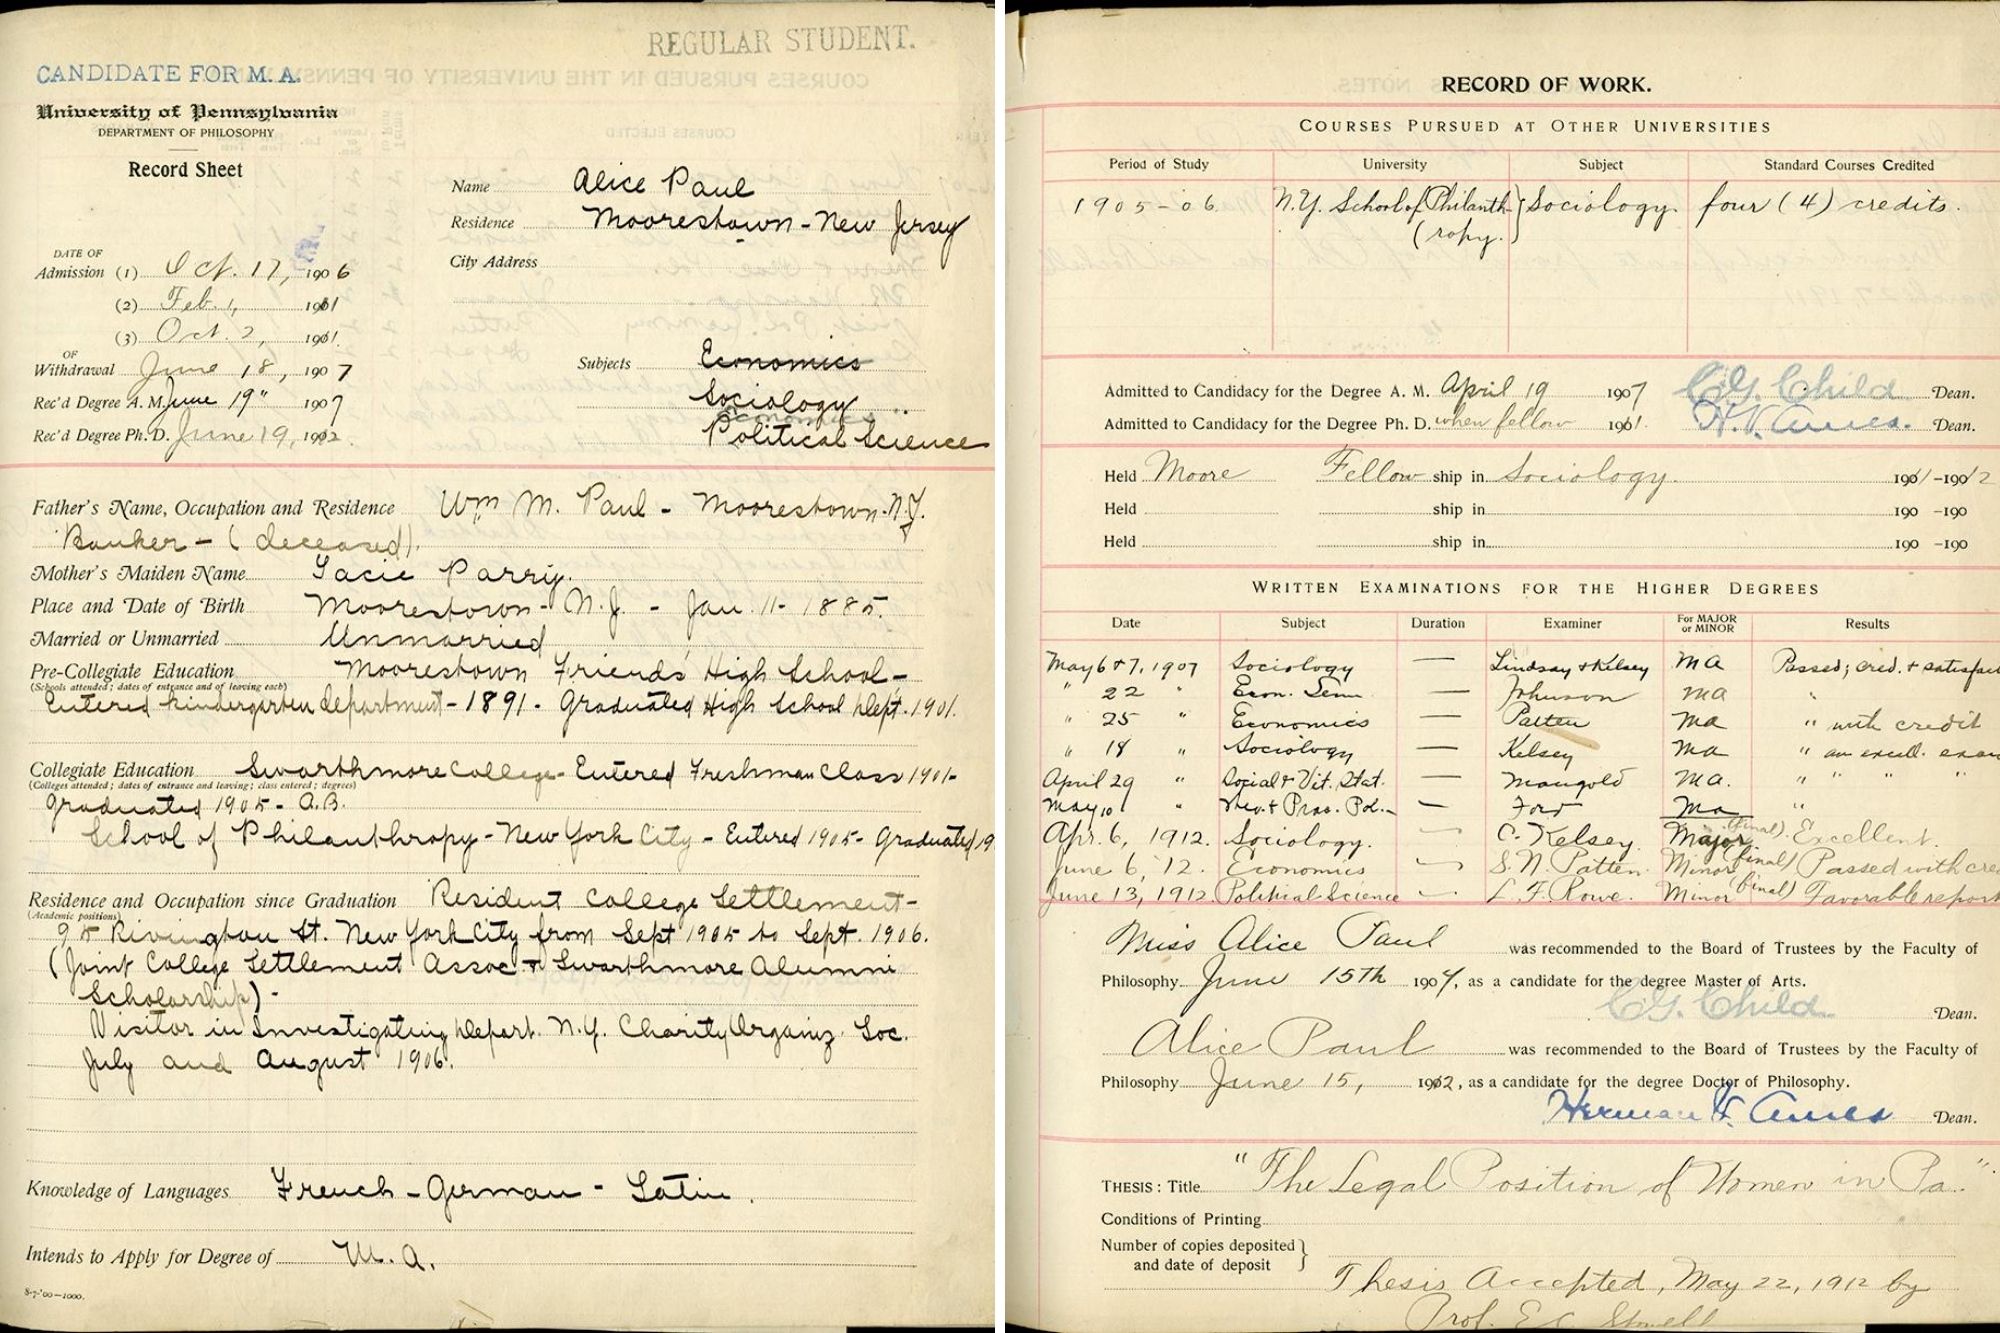 REGULAR STUDENT.
CANDIDATE FOR M. A.
University of Pennsylvania
DEPARTMENT OF PHILOSOPHY
Record Sheet
Name Alice Paul
Residence Moorestown - New Jersey
City Address
DATE OF
Admission (1) Oct. 17, 1906
(2) Feb. 1, 1911
(3) Oct. 2, 1911.
OF
Withdrawal June 18, 1907
Rec'd Degree A. M. June 19" 1907
Rec'd Degree Ph. D. June 19, 1912.
Subjects Economics
Sociology
Economics
Political Science
Father's Name, Occupation and Residence Wm M. Paul - Moorestown - N.J.
Banker - (deceased).
Mother's Maiden Name Tacie Parry.
Place and Date of Birth Moorestown - N.J. - Jan. 11 - 1885.
Married or Unmarried Unmarried
Pre-Collegiate Education Moorestown Friends' High School -
(Schools attended; dates of entrance and of leaving each)
Entered kindergarten department - 1891 - Graduated High School Dept. 1901.
Collegiate Education Swarthmore College - Entered Freshman Class 1901 -
(Colleges attended; dates of entrance and leaving; class entered; degrees)
graduated 1905 - A.B.
School of Philanthropy - New York City - Entered 1905 - Graduated 19
Residence and Occupation since Graduation Resident College Settlement -
(Academic positions)
95 Rivington St. New York City from Sept 1905 to Sept. 1906.
(Joint College Settlement Assoc + Swarthmore Alumni
Scholarship) -
Visitor in Investigating Depart. N.Y. Charity Organiz. Soc.
July and August 1906.
Knowledge of Languages French - German - Latin.
Intends to Apply for Degree of M.A.
8-7-'00—1000.
RECORD OF WORK.
COURSES PURSUED AT OTHER UNIVERSITIES
Period of Study University Subject Standard Courses Credited
1905-06 N.Y. School of Philanth Sociology. four (4) credits.
(ropy.
Admitted to Candidacy for the Degree A. M. April 19 1907 C.G. Child Dean.
Admitted to Candidacy for the Degree Ph. D. when fellow 1911. H.V. Ames. Dean.
Held Moore Fellow ship in Sociology. 1911-1912
Held ship in 190 -190
Held ship in 190 -190
WRITTEN EXAMINATIONS FOR THE HIGHER DEGREES
Date Subject Duration Examiner For MAJOR or MINOR Results
May 6 & 7, 1907 Sociology — Lindsay & Kelsey MA Passed; cred. & satisfact
" 22 " Econ. Sem. — Johnson MA "
" 25 " Economics — Patten MA " with credit
" 18 " Sociology — Kelsey MA " an excell. exam
April 29 " Social & Vit. Stat. — Mangold MA. " " " "
May 10 " — Ford MA "
Apr. 6, 1912. Sociology. — C. Kelsey. Major (final). Excellent.
June 6, '12. Economics — S. N. Patten. Minor (final) Passed with cre
June 13, 1912. Political Science — L. F. Rowe. Minor (final) Favorable report
Miss Alice Paul was recommended to the Board of Trustees by the Faculty of
Philosophy June 15th 1907, as a candidate for the degree Master of Arts.
C.G. Child Dean.
Alice Paul was recommended to the Board of Trustees by the Faculty of
Philosophy June 15, 1912, as a candidate for the degree Doctor of Philosophy.
Herman V. Ames Dean.
THESIS: Title "The Legal Position of Women in Pa."
Conditions of Printing
Number of copies deposited
and date of deposit
Thesis Accepted, May 22, 1912 by
Prof. E.C.